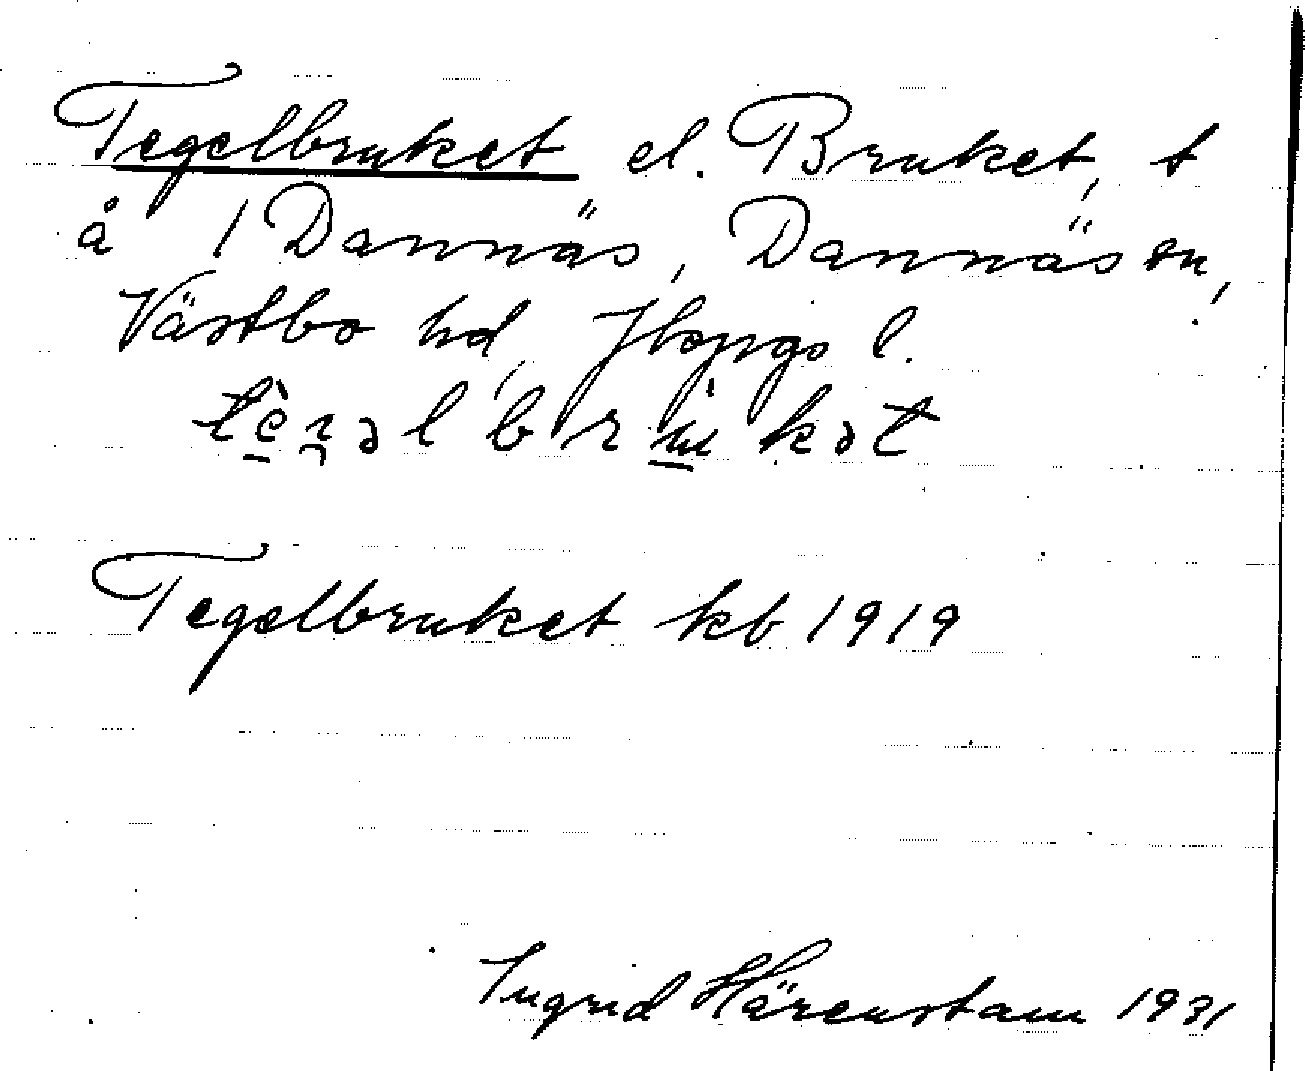 Tegelbruket el. Bruket, t
å 1 Dannäs, Dannäs sn,
Västbo hd, Jkpgs l.
Tegelbruket kb 1919
Ingrid Härenstam 1931